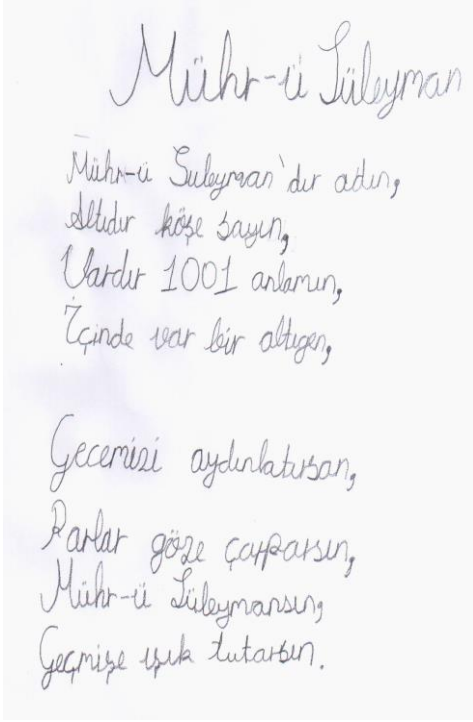 Mühr-ü Süleyman
Mühr-ü Suleyman'dır adın,
Altıdır köşe sayın,
Vardır 1001 anlamın,
İçinde var bir altıgen,
Gecemizi aydınlatırsan,
Parlar göze çarparsın,
Mühr-ü Süleymansın,
Geçmişe ışık tutarsın.